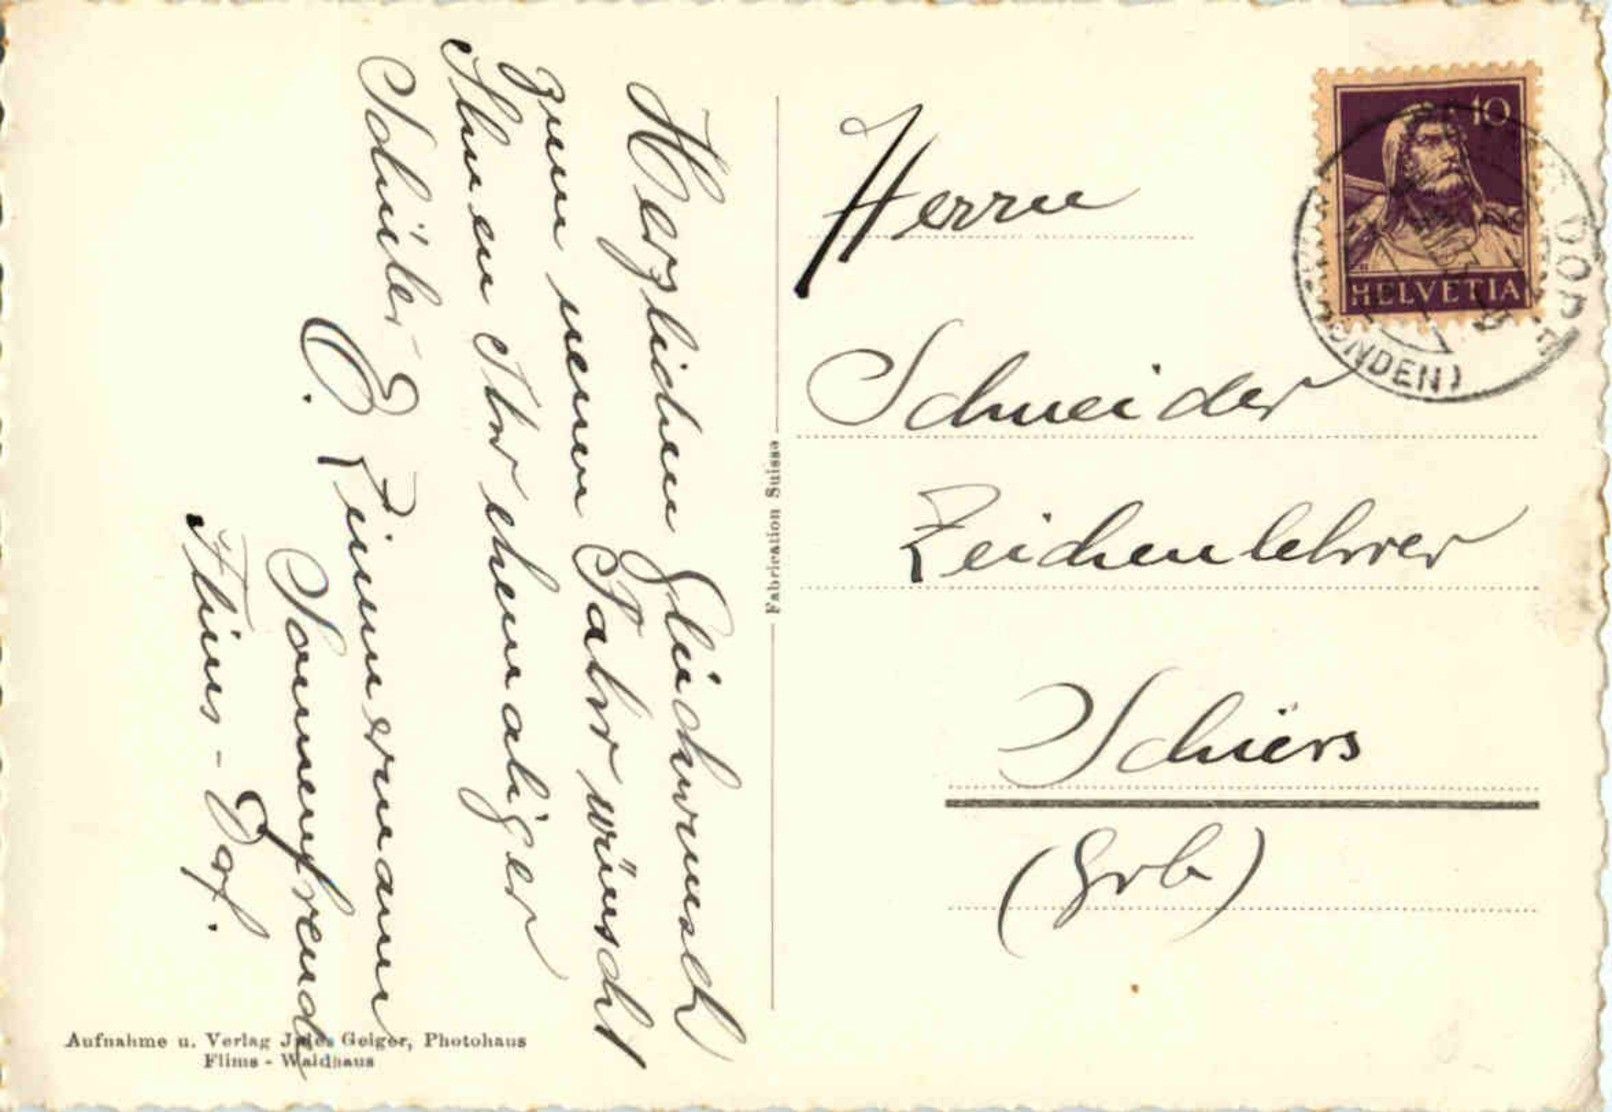 Herzlichen Glückwunsch
zum neuen Jahr wünscht
Ihnen Ihr ehemaliger
Schüler
E. Zimmermann
Sonnenfreude
Flims-Dorf.
Fabrication Suisse
Aufnahme u. Verlag Jules Geiger, Photohaus
Flims - Waldhaus
10
HELVETIA
DORF
Herrn
Schneider
Zeichenlehrer
Schiers
(Grb)